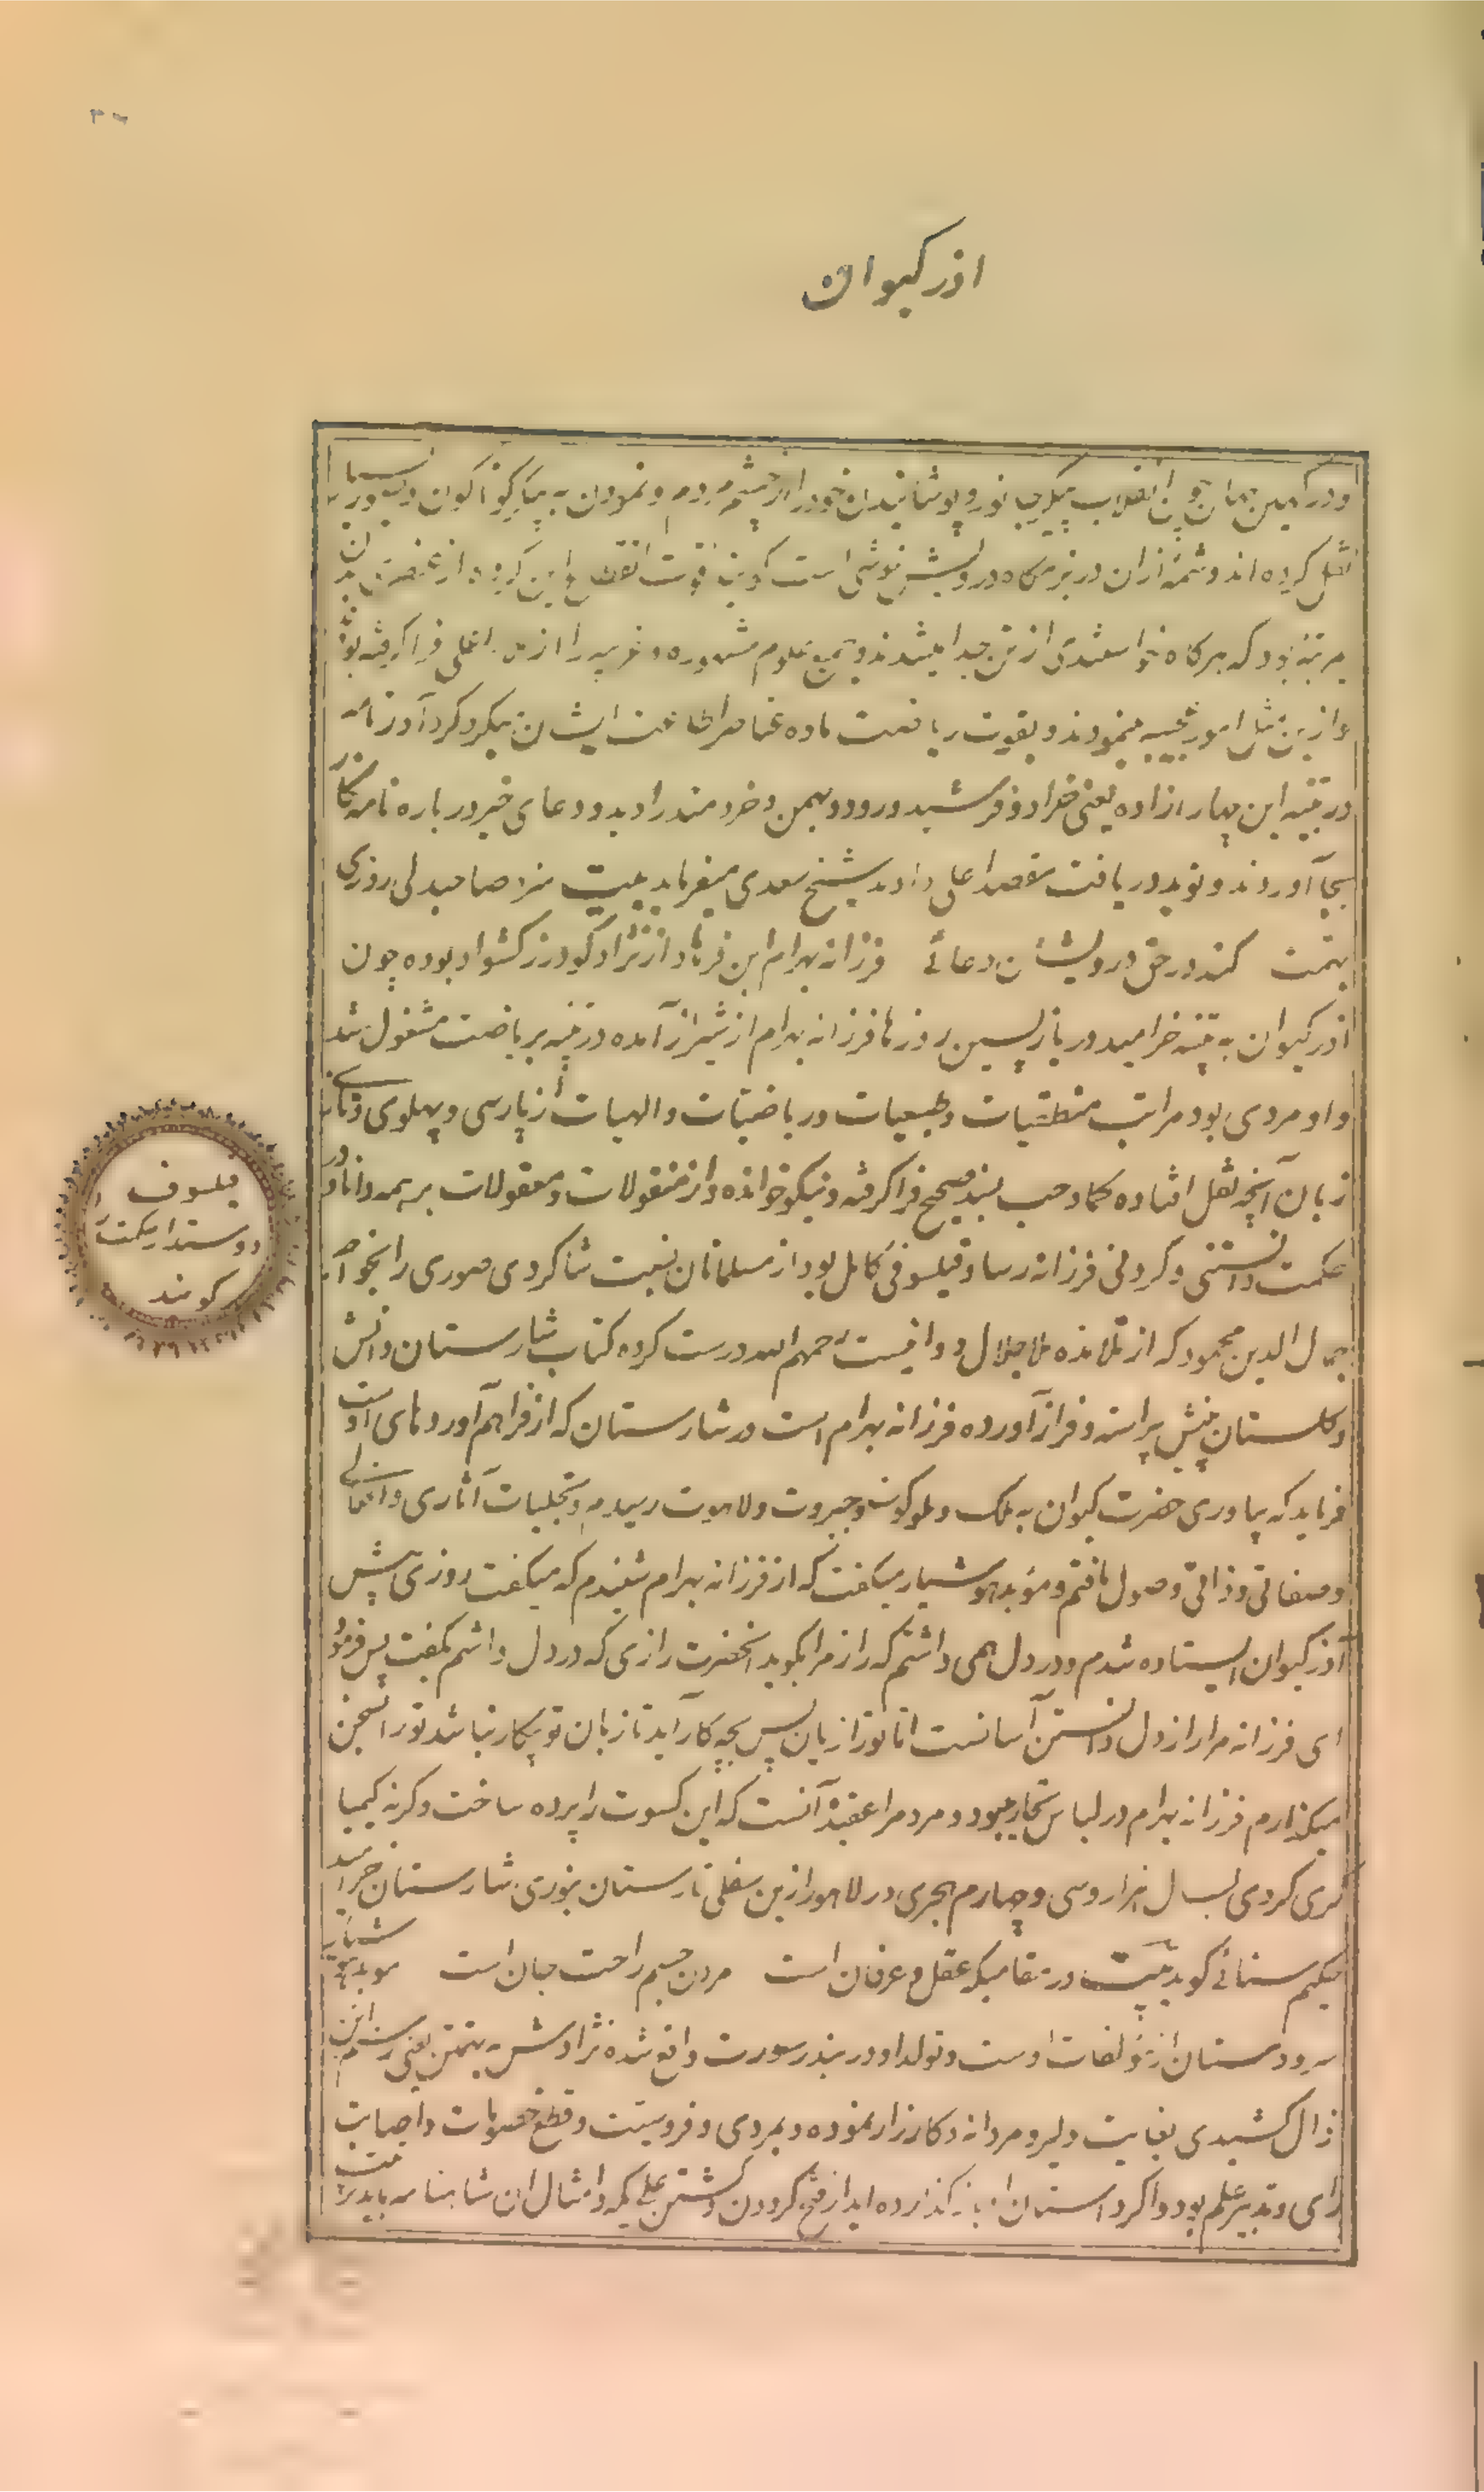 ۳۷
اذر کیوان
و در کمین همان انقلاب پیکر جانور و پوشانیدن خود را از چشم مردم و نمودن به پیکر گوناگون
نقل کرده اند و شمه ازان در بزمگاه درویش خوشی است گویند قوت این گروه از عنصری بدن
بمرتبه بود که هرگاه خواستندی از تن جدا میشدند و جمیع علوم مشهوره و غریبه را از فرا گرفته
و ازین مثل امور عجیبه مینمودند و بقوت ریاضت ماده عناصر اطاعت ایشان میکرد
در پتنه این چهار ازاده یعنی خراد و فرشید ورد و بهمن و خردمند را دید و دعای خیر در باره نامه نگار
بجا آوردند و نوید دریافت مقصد اعلی دادند شیخ سعدی میفرماید بیت سزد صاحبدلی روزی
بهمت کند در حق درویشان دعائے فرزانه بهرام ابن فرهاد از نژاد گودرز کشواد بوده چون
اذر کیوان به پتنه خرامید در بازپسین روزها فرزانه بهرام از شیراز آمده در پتنه بریاضت مشغول شد
و او مردی بود مراتب منطقیات و طبیعیات و ریاضیات و الهیات از پارسی و پهلوی و تازی
زبان آنچه نقل افتاده کماوجب بسند صحیح فرا گرفته و نیکو خوانده و از منقولات و معقولات بر همه دانا و در
حکمت دانستنی و کردنی فرزانه رسا و فیلسوفی کامل بود از مسلمانان نسبت شاگردی صوری را بخواجه
جمال الدین محمود که از تلامذه ملا جلال دوانیست رحمهم الله درست کرده کتاب شارستان دانش
و گلستان بینش پیراسته و فراز آورده فرزانه بهرام است در شارستان که از فراهم آوردهای اوست
فرماید که بیاوری حضرت کیوان به ملک و ملکوت و جبروت و لاهوت رسیدم و تجلیات آثاری و افعالی
و صفاتی و ذاتی وصول یافتم و موبد هوشیار میگفت که از فرزانه بهرام شنیدم که میگفت روزی پیش
آذر کیوان ایستاده شدم و در دل همی داشتم که راز مرا بگوید انحضرت رازی که در دل داشتم بگفت پس فرمود
ای فرزانه مرا راز دل دانستن آسانست اما تو را زبان پس بچه کار آید تا زبان تو بیکار نباشد تو را سخن
میگذارم فرزانه بهرام در لباس تجار میبود و مردم را عقیده آنست که این کسوت را پرده ساخت وگرنه کیمیا
گری کردی بسال هزار و سی و چهارم هجری در لاهور ازین سفلی تارستان بنوری شارستان خرامید
حکیم سنائے گوید بیت در مقامیکه عقل و عرفان است مردن جسم راحت جان است موبد هوشیار
سرودستان از مؤلفات اوست و تولد او در بندر سورت واقع شده نژادش به تهمتن یعنی رستم ابن
زال کشیدی بغایت دلیر و مردانه و کارزار نموده و بمردی و فروسیت و قطع خصومات و اصابت
رای و تدبیر علم بود و اگر داستان باز گذارده اید از فتح گرودن و کشتن علی یکه و امثال ان شاهنامه باید
فیلسوف
دوستدار حکمت را
گویند